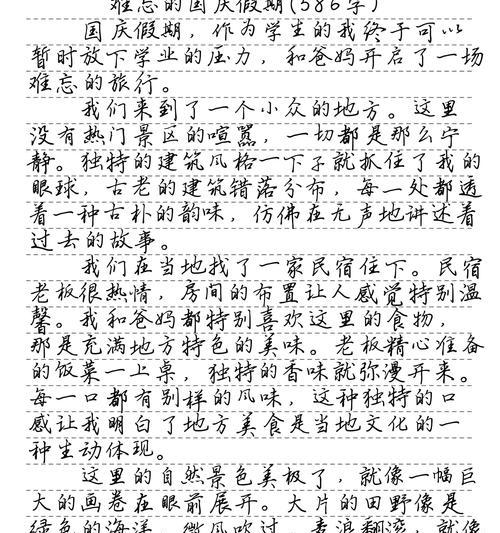 难忘的国庆假期(586字)
国庆假期，作为学生的我终于可以
暂时放下学业的压力，和爸妈开启了一场
难忘的旅行。
我们来到了一个小众的地方。这里
没有热门景区的喧嚣，一切都是那么宁
静。独特的建筑风格一下子就抓住了我的
眼球，古老的建筑错落分布，每一处都透
着一种古朴的韵味，仿佛在无声地讲述着
过去的故事。
我们在当地找了一家民宿住下。民宿
老板很热情，房间的布置让人感觉特别温
馨。我和爸妈都特别喜欢这里的食物，
那是充满地方特色的美味。老板精心准备
的饭菜一上桌，独特的香味就弥漫开来。
每一口都有别样的风味，这种独特的口
感让我明白了地方美食是当地文化的一
种生动体现。
这里的自然景色美极了，就像一幅巨
大的画卷在眼前展开。大片的田野像是
绿色的海洋，微风吹过，麦浪翻滚，就像